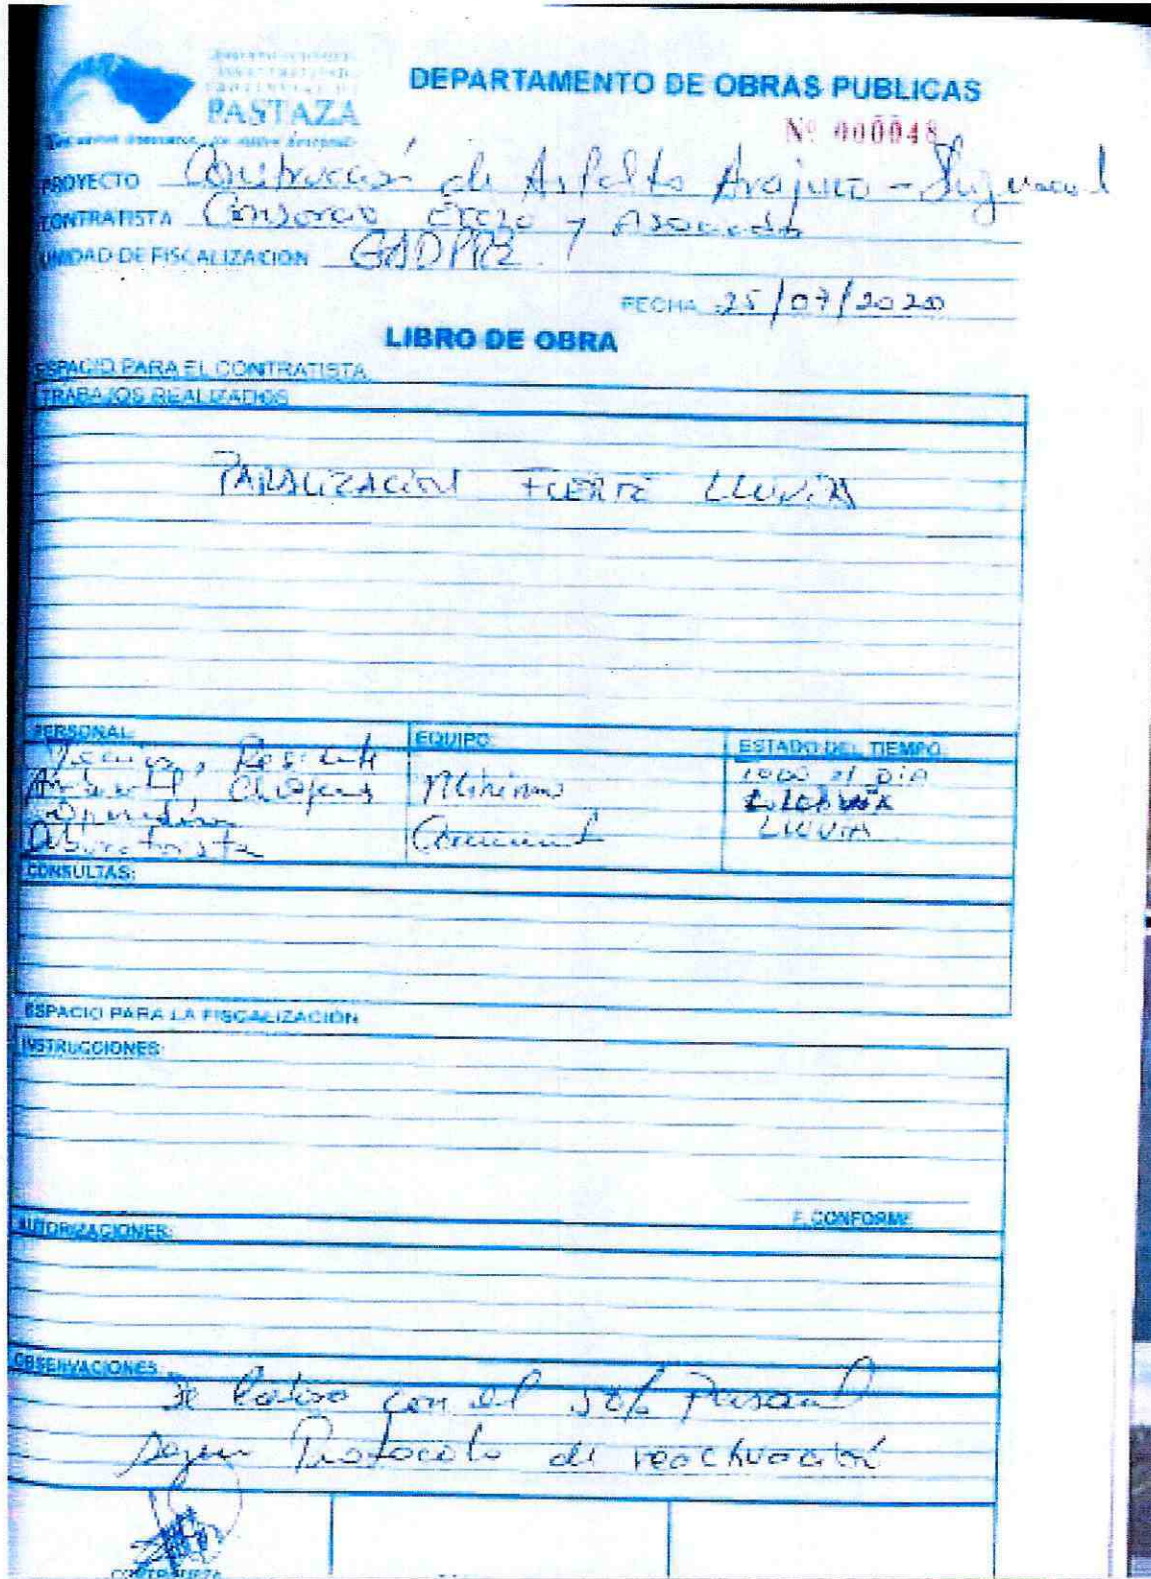 PASTAZA
DEPARTAMENTO DE OBRAS PUBLICAS
Nº 000048
PROYECTO Construcción de Asfalto Arajuno -
CONTRATISTA Consorcio y Asociados
UNIDAD DE FISCALIZACION
FECHA 25/07/2020
LIBRO DE OBRA
ESPACIO PARA EL CONTRATISTA
TRABAJOS REALIZADOS
PARALIZACION FUERTE LLUVIA
PERSONAL:
Residente
Choferes
EQUIPO:
Minimo
ESTADO DEL TIEMPO:
TODO EL DIA
LLUVIA
CONSULTAS:
ESPACIO PARA LA FISCALIZACIÓN
INSTRUCCIONES:
F. CONFORME
AUTORIZACIONES:
OBSERVACIONES:
Se con el 50% Personal
segun Protocolo de reactivación